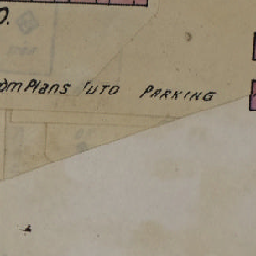 O.
om Plans AUTO PARKING